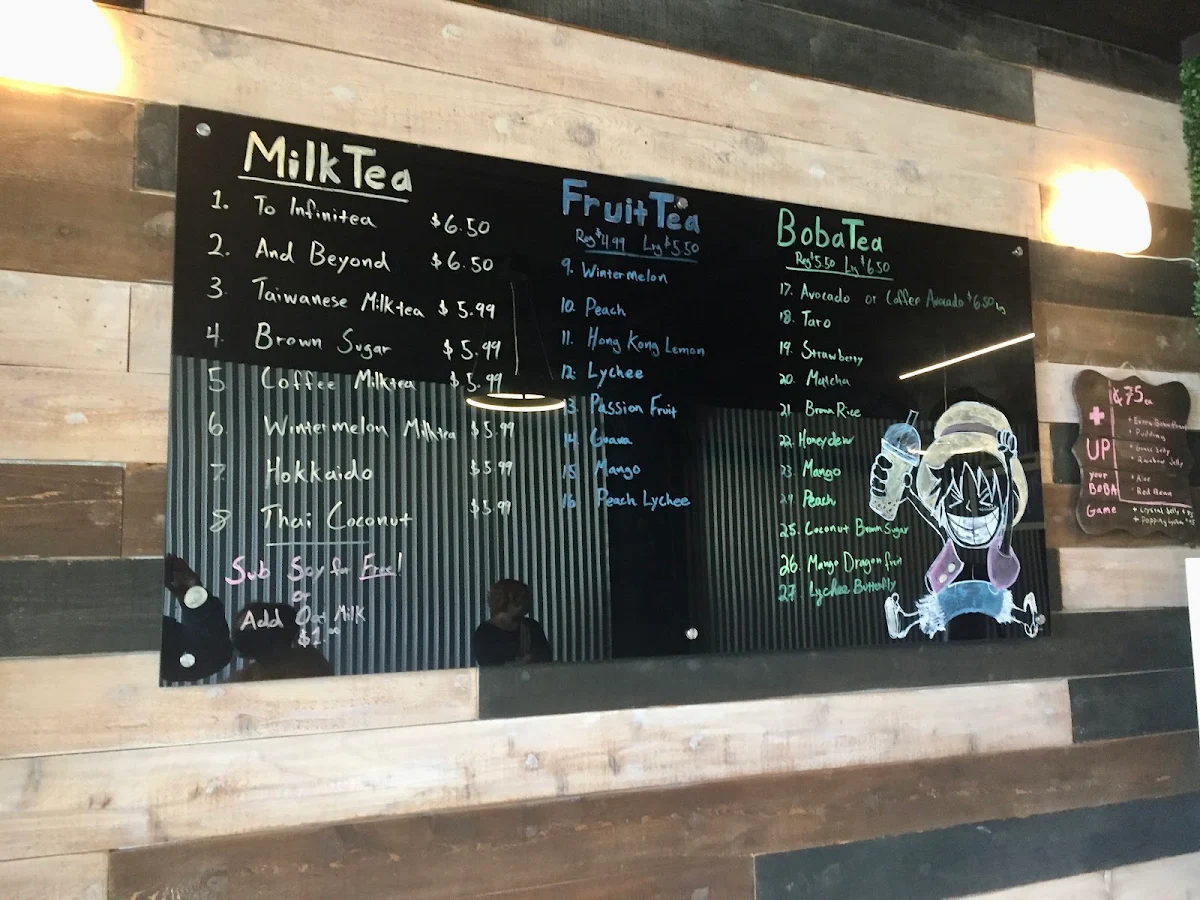 MilkTea
1. To Infinitea $6.50
2. And Beyond $6.50
3. Taiwanese Milktea $5.99
4. Brown Sugar $5.99
5 Coffee Milktea $5.99
6. Wintermelon Milktea $5.99
7. Hokkaido $5.99
8 Thai Coconut $5.99
Sub Soy for Free!
or
Add Oat Milk
$1.00
FruitTea
Reg $4.99 Lrg $5.50
9. Wintermelon
10. Peach
11. Hong Kong Lemon
12. Lychee
3. Passion Fruit
14. Guava
15 Mango
16 Peach Lychee
BobaTea
Reg $5.50 Lg $6.50
17. Avocado or Coffee Avocado $6.50 Lg
18. Taro
19. Strawberry
20. Matcha
21. Brown Rice
22. Honeydew
23. Mango
24. Peach
25. Coconut Brown Sugar
26. Mango Dragon fruit
27. Lychee Butterfly
+
UP
your
BOBA
Game
¢75
+ Pudding
+ Grass Jelly
+ Rainbow Jelly
+ Aloe
+ Red Bean
+ Crystal Jelly
+ Popping